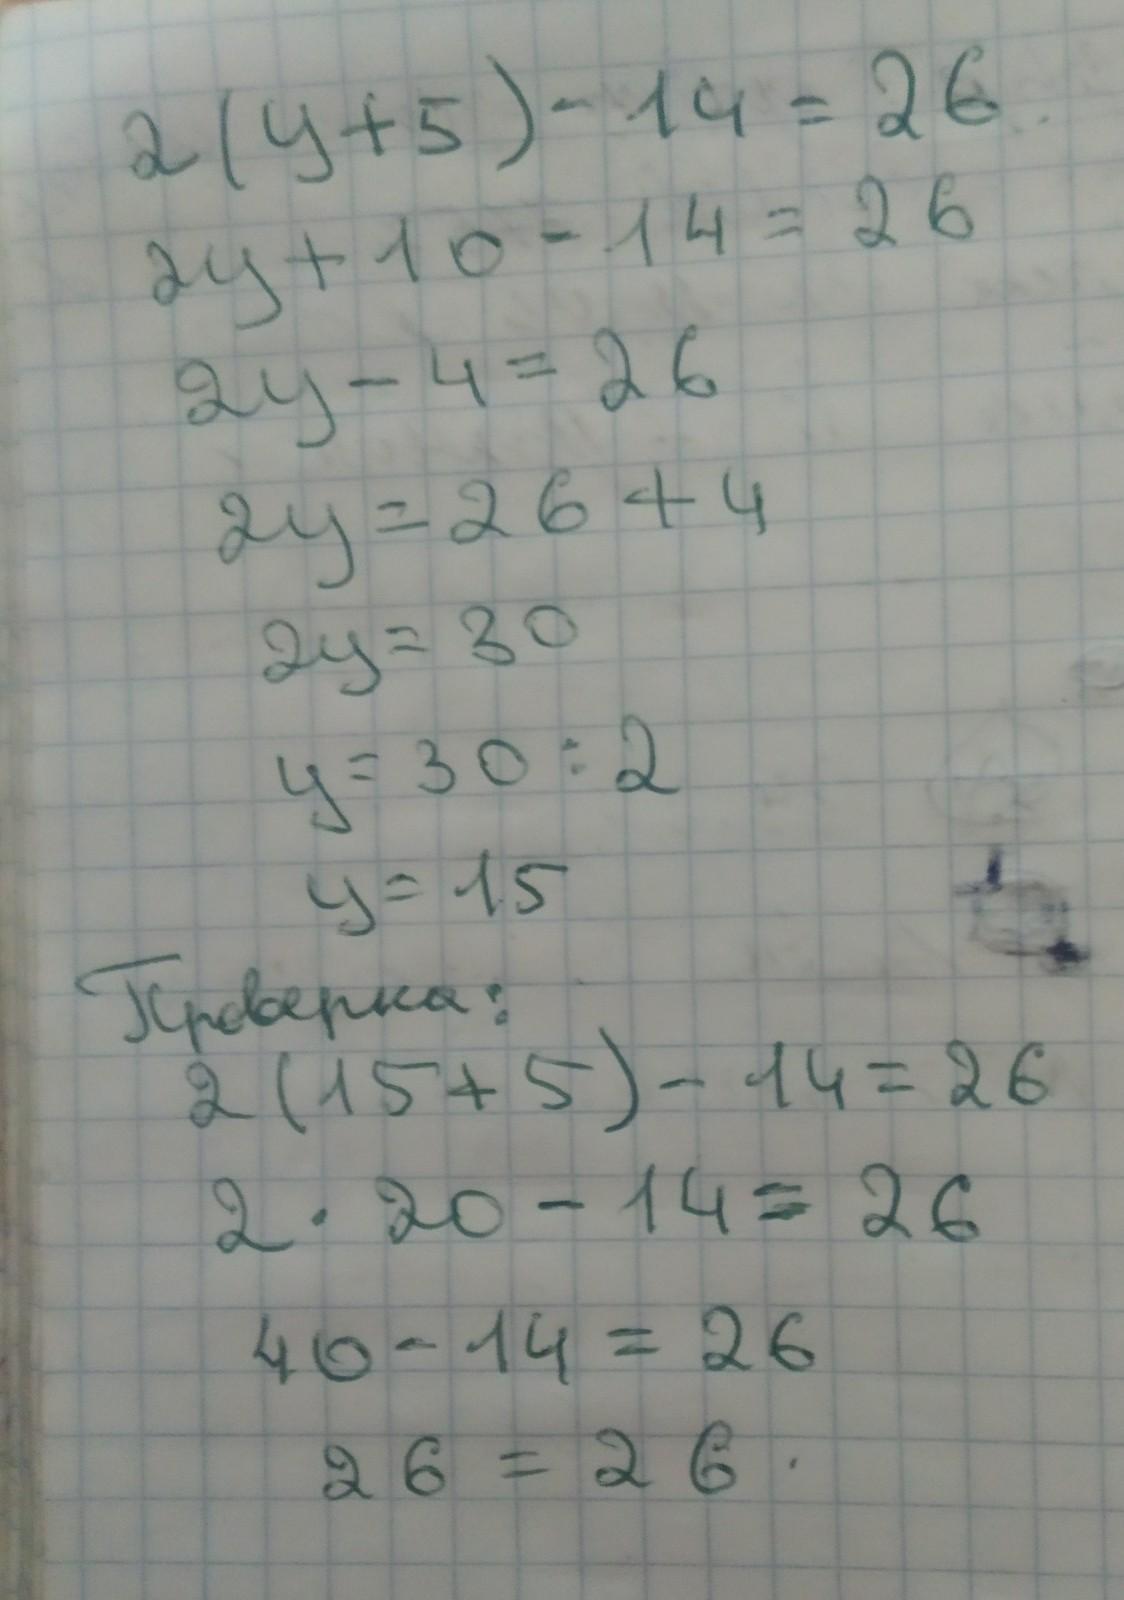 2(y+5)-14=26.
2y+10-14=26
2y-4=26
2y=26+4
2y=30
y=30:2
y=15
Проверка:
2(15+5)-14=26
2·20-14=26
40-14=26
26=26.